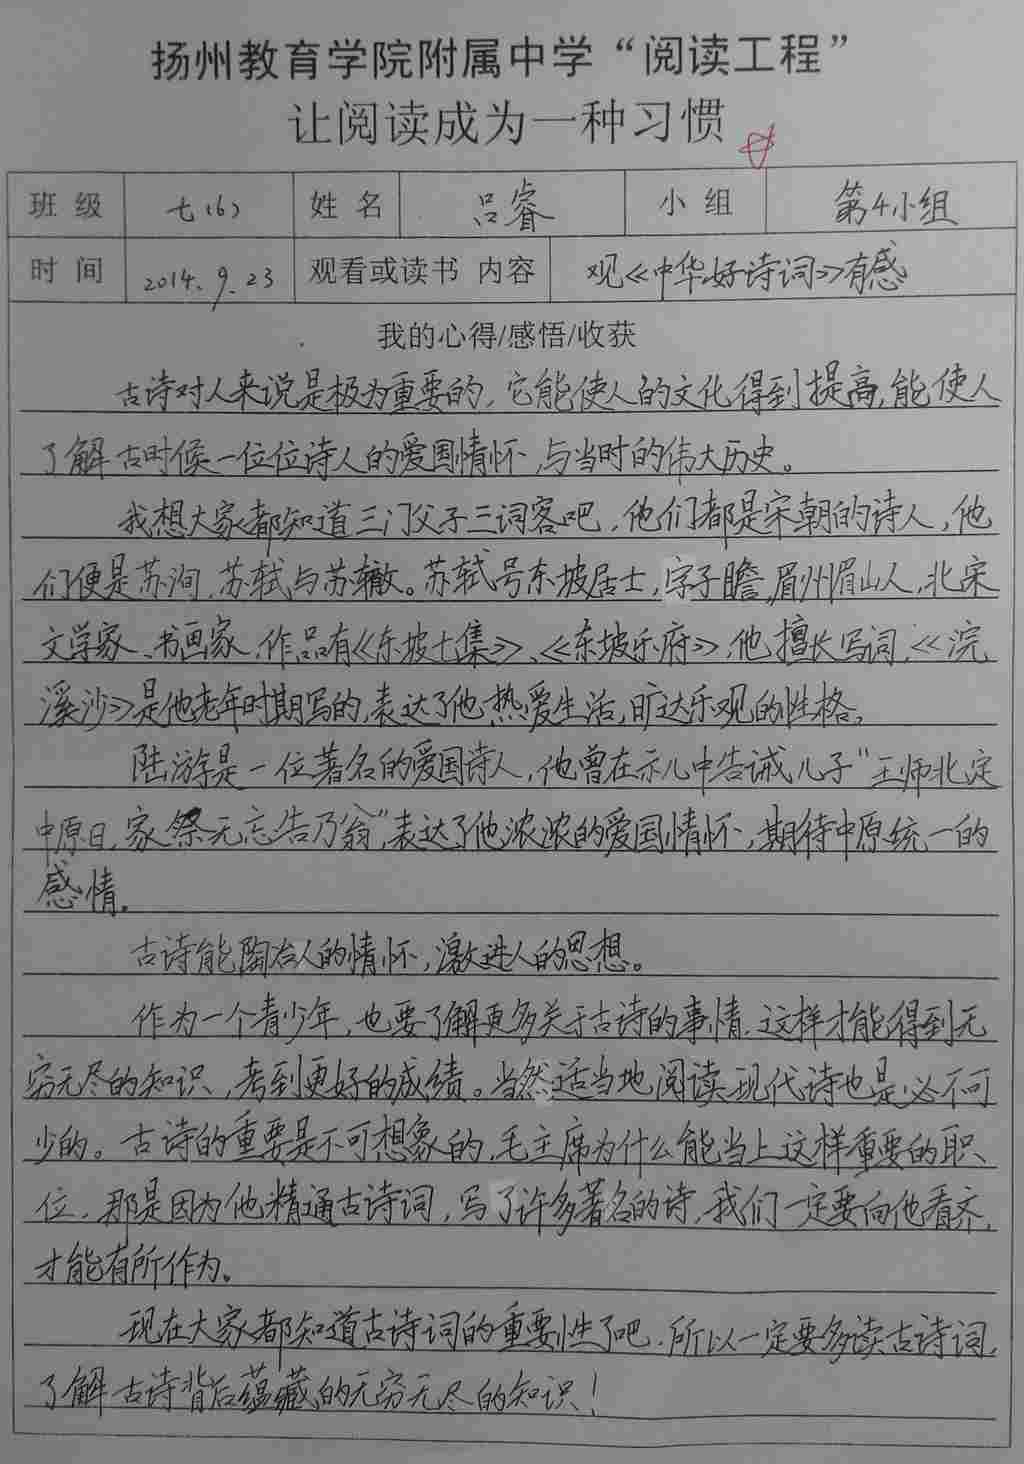 扬州教育学院附属中学“阅读工程”
让阅读成为一种习惯
班 级 七(6) 姓 名 吕睿 小 组 第4小组
时 间 2014.9.23 观看或读书 内容 观《中华好诗词》有感
我的心得/感悟/收获
古诗对人来说是极为重要的,它能使人的文化得到提高,能使人
了解古时候一位位诗人的爱国情怀,与当时的伟大历史。
我想大家都知道三门父子三词客吧,他们都是宋朝的诗人,他
们便是苏洵,苏轼与苏辙。苏轼号东坡居士,字子瞻,眉州眉山人,北宋
文学家、书画家,作品有《东坡七集》、《东坡乐府》,他擅长写词,《浣
溪沙》是他老年时期写的,表达了他热爱生活,旷达乐观的性格。
陆游是一位著名的爱国诗人,他曾在示儿中告诫儿子“王师北定
中原日,家祭无忘告乃翁”,表达了他浓浓的爱国情怀,期待中原统一的
感情。
古诗能陶冶人的情怀,激进人的思想。
作为一个青少年,也要了解更多关于古诗的事情,这样才能得到无
穷无尽的知识,考到更好的成绩。当然适当地阅读现代诗也是必不可
少的。古诗的重要是不可想象的,毛主席为什么能当上这样重要的职
位,那是因为他精通古诗词,写了许多著名的诗,我们一定要向他看齐,
才能有所作为。
现在大家都知道古诗词的重要性了吧,所以一定要多读古诗词,
了解古诗背后蕴藏的无穷无尽的知识!